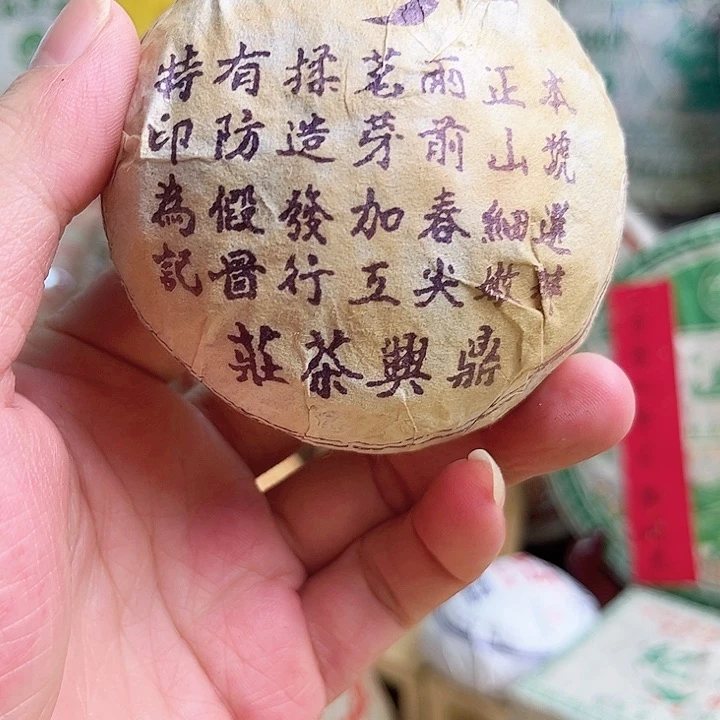 本號選
正山細嫩
雨前春尖
茗芽加工
揉造發行
有防假冒
特印為記
鼎興茶莊